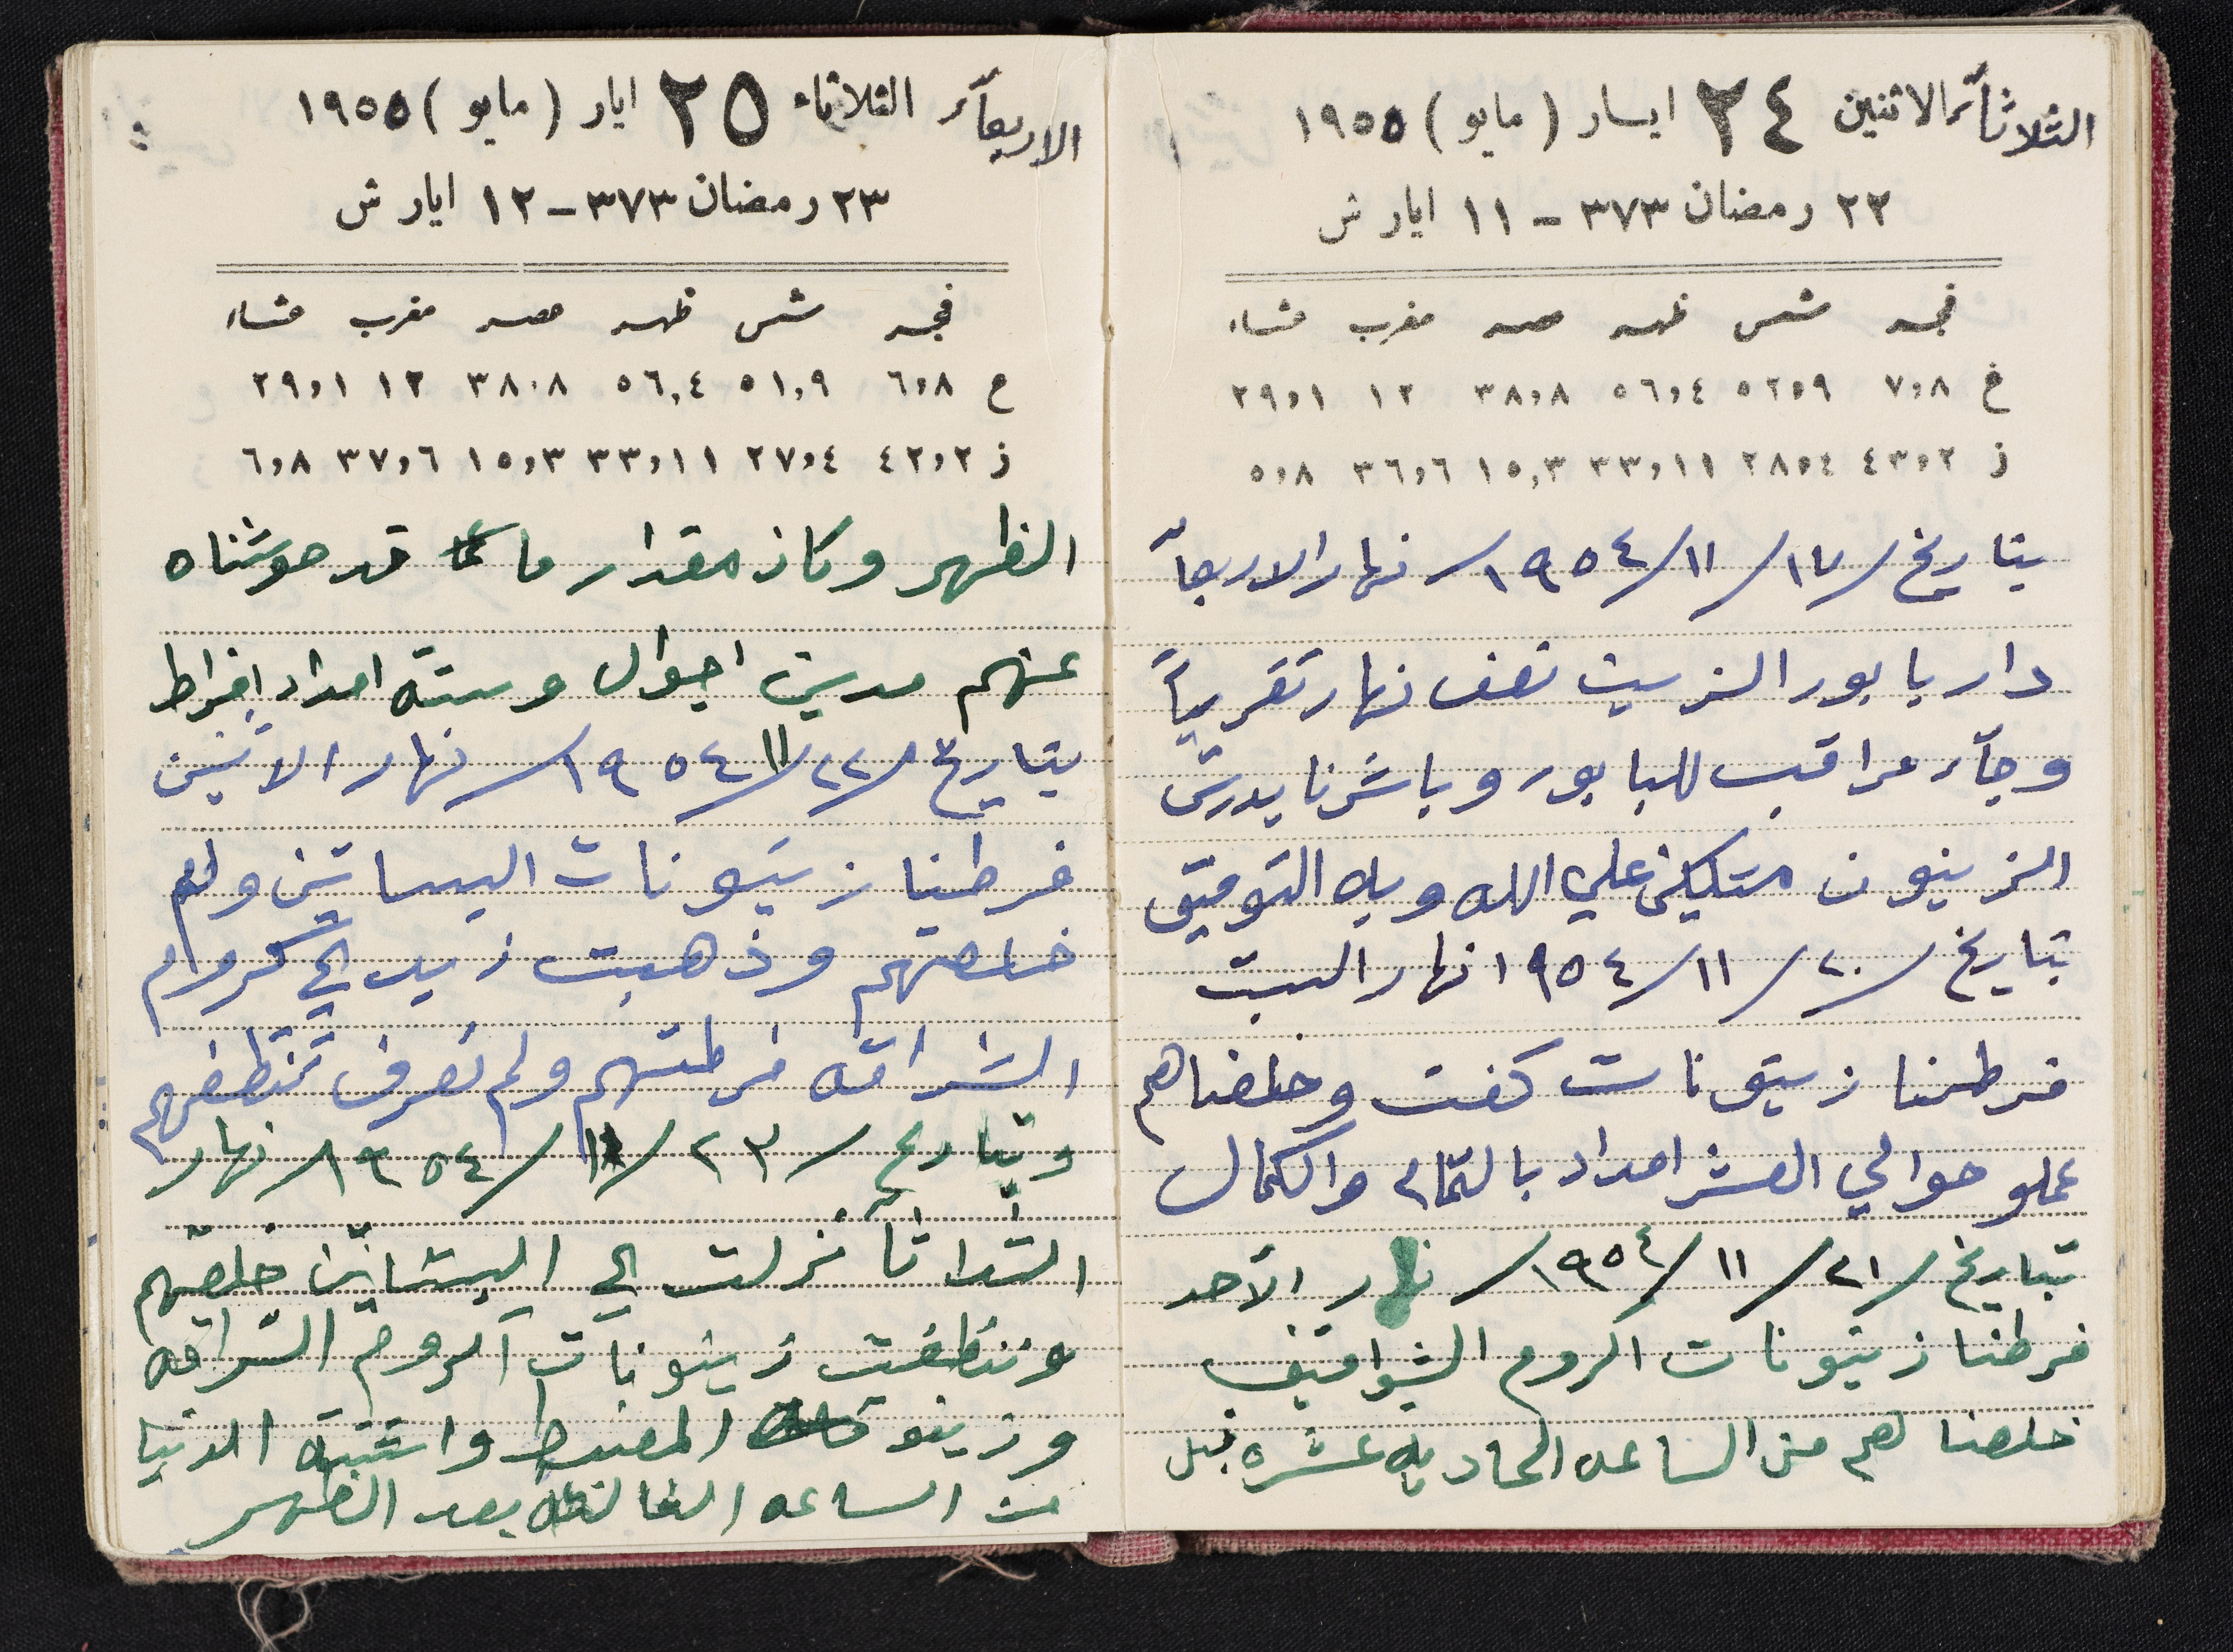 الثلاثآء الاثنين ٢٤ ايار ( مايو ) ١٩٥٥
٢٢ رمضان ٣٧٣ - ١١ ايار ش
فجر شمس ظهر عصر مغرب عشاء
غ ٧،٨ ٥٢،٩ ٥٦،٤ ٣٨،٨ ١٢ ٢٩،١
ز ٤٣،٢ ٢٨،٤ ٣٣،١١ ١٥,٣ ٣٦،٦ ٥،٨
بتاريخ / ١٧ / ١١ / ١٩٥٤ / نهار الاربعآ
دار بابور الزيت نصف نهار تقريباً
وجآء مراقب للبابور وباشرنا يدرس
الزيتون متكلين علي الله وبه التوفيق
بتاريخ / ٢٠ / ١١ / ١٩٥٤ نهار السبت
فرطنا زيتونات كفت وخلصناهم
عملو حوالي العشر امداد بالتمام والكمال
بتاريخ / ٢١ / ١١ / ١٩٥٤ / نهار الآحد
فرطنا زيتونات اكروم الشواقيف
خلصناهم من الساعه الحاديه عشره قبل
الاربعآء الثلاثاء ٢٥ ايار ( مايو ) ١٩٥٥
٢٣ رمضان ٣٧٣ - ١٢ ايار ش
فجر شمس ظهر عصر مغرب عشاء
ع ٦،٨ ٥١,٩ ٥٦,٤ ٣٨،٨ ١٢ ٢٩،١
ز ٤٢،٢ ٢٧،٤ ٣٣،١١ ١٥،٣ ٣٧،٦ ٦،٨
الظهر وكان مقدار ما قد حوشناه
عنهم مدين احوال وستة امداد افراط
بتاريخ / ٢٢ / ١١ / ١٩٥٤ / نهار الاثنين
فرطنا زيتونات البساتين ولم
خلصتهم وذهبت زيد الي كروم
الشراقه فرطتهم ولم نعرف تنظفهم
وبتاريخ / ٢٣ / ١١ / ١٩٥٤ / نهار
الثلاثآ نزلت الي البساتين خلصتهم
ونظفت زيتونات اكروم الشراقه
وزيتون المغيط واشتت الدنيا
من الساعه الثالثه بعد الظهر